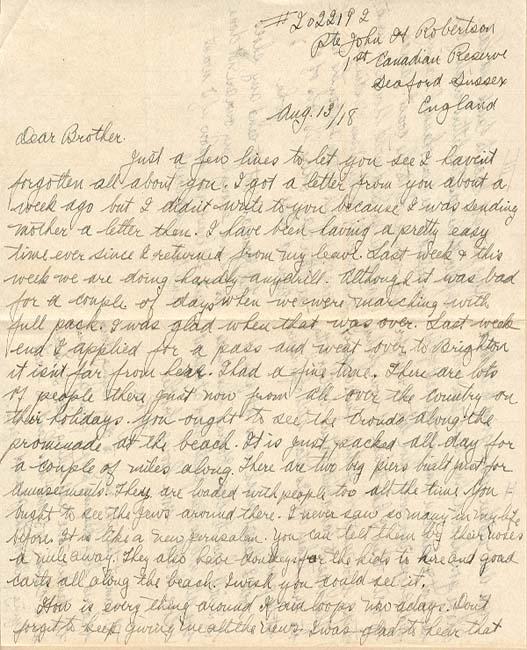 #2022192
Pte John H Robertson
1st Canadian Reserve
Seaford Sussex
England
Aug. 13/18
Dear Brother.
Just a few lines to let you see I haven't
forgotten all about you. I got a letter from you about a
week ago but I didn't write to you because I was sending
mother a letter then. I have been having a pretty easy
time ever since I returned from my leave. Last week & this
week we are doing hardly any drill. Although it was bad
for a couple of days when we were marching with
full pack. I was glad when that was over. Last week
end I applied for a pass and went over to Brighton
it isn't far from here. I had a fine time. There are lots
of people there just now from all over the country on
their holidays. you ought to see the crouds along the
promenade at the beach. It is just packed all day for
a couple of miles along. There are two big piers built just for
amusements. They are loaded with people too all the time. You
ought to see the Jews around there. I never saw so many in my life
before. It is like a new Jerusalem. You can tell them by their noses
a mile away. They also have donkeys for the kids to hire and goad
carts all along the beach. I wish you could see it.
How is every thing around Kamloops nowadays. Don't
forget to keep giving me all the news. I was glad to hear that